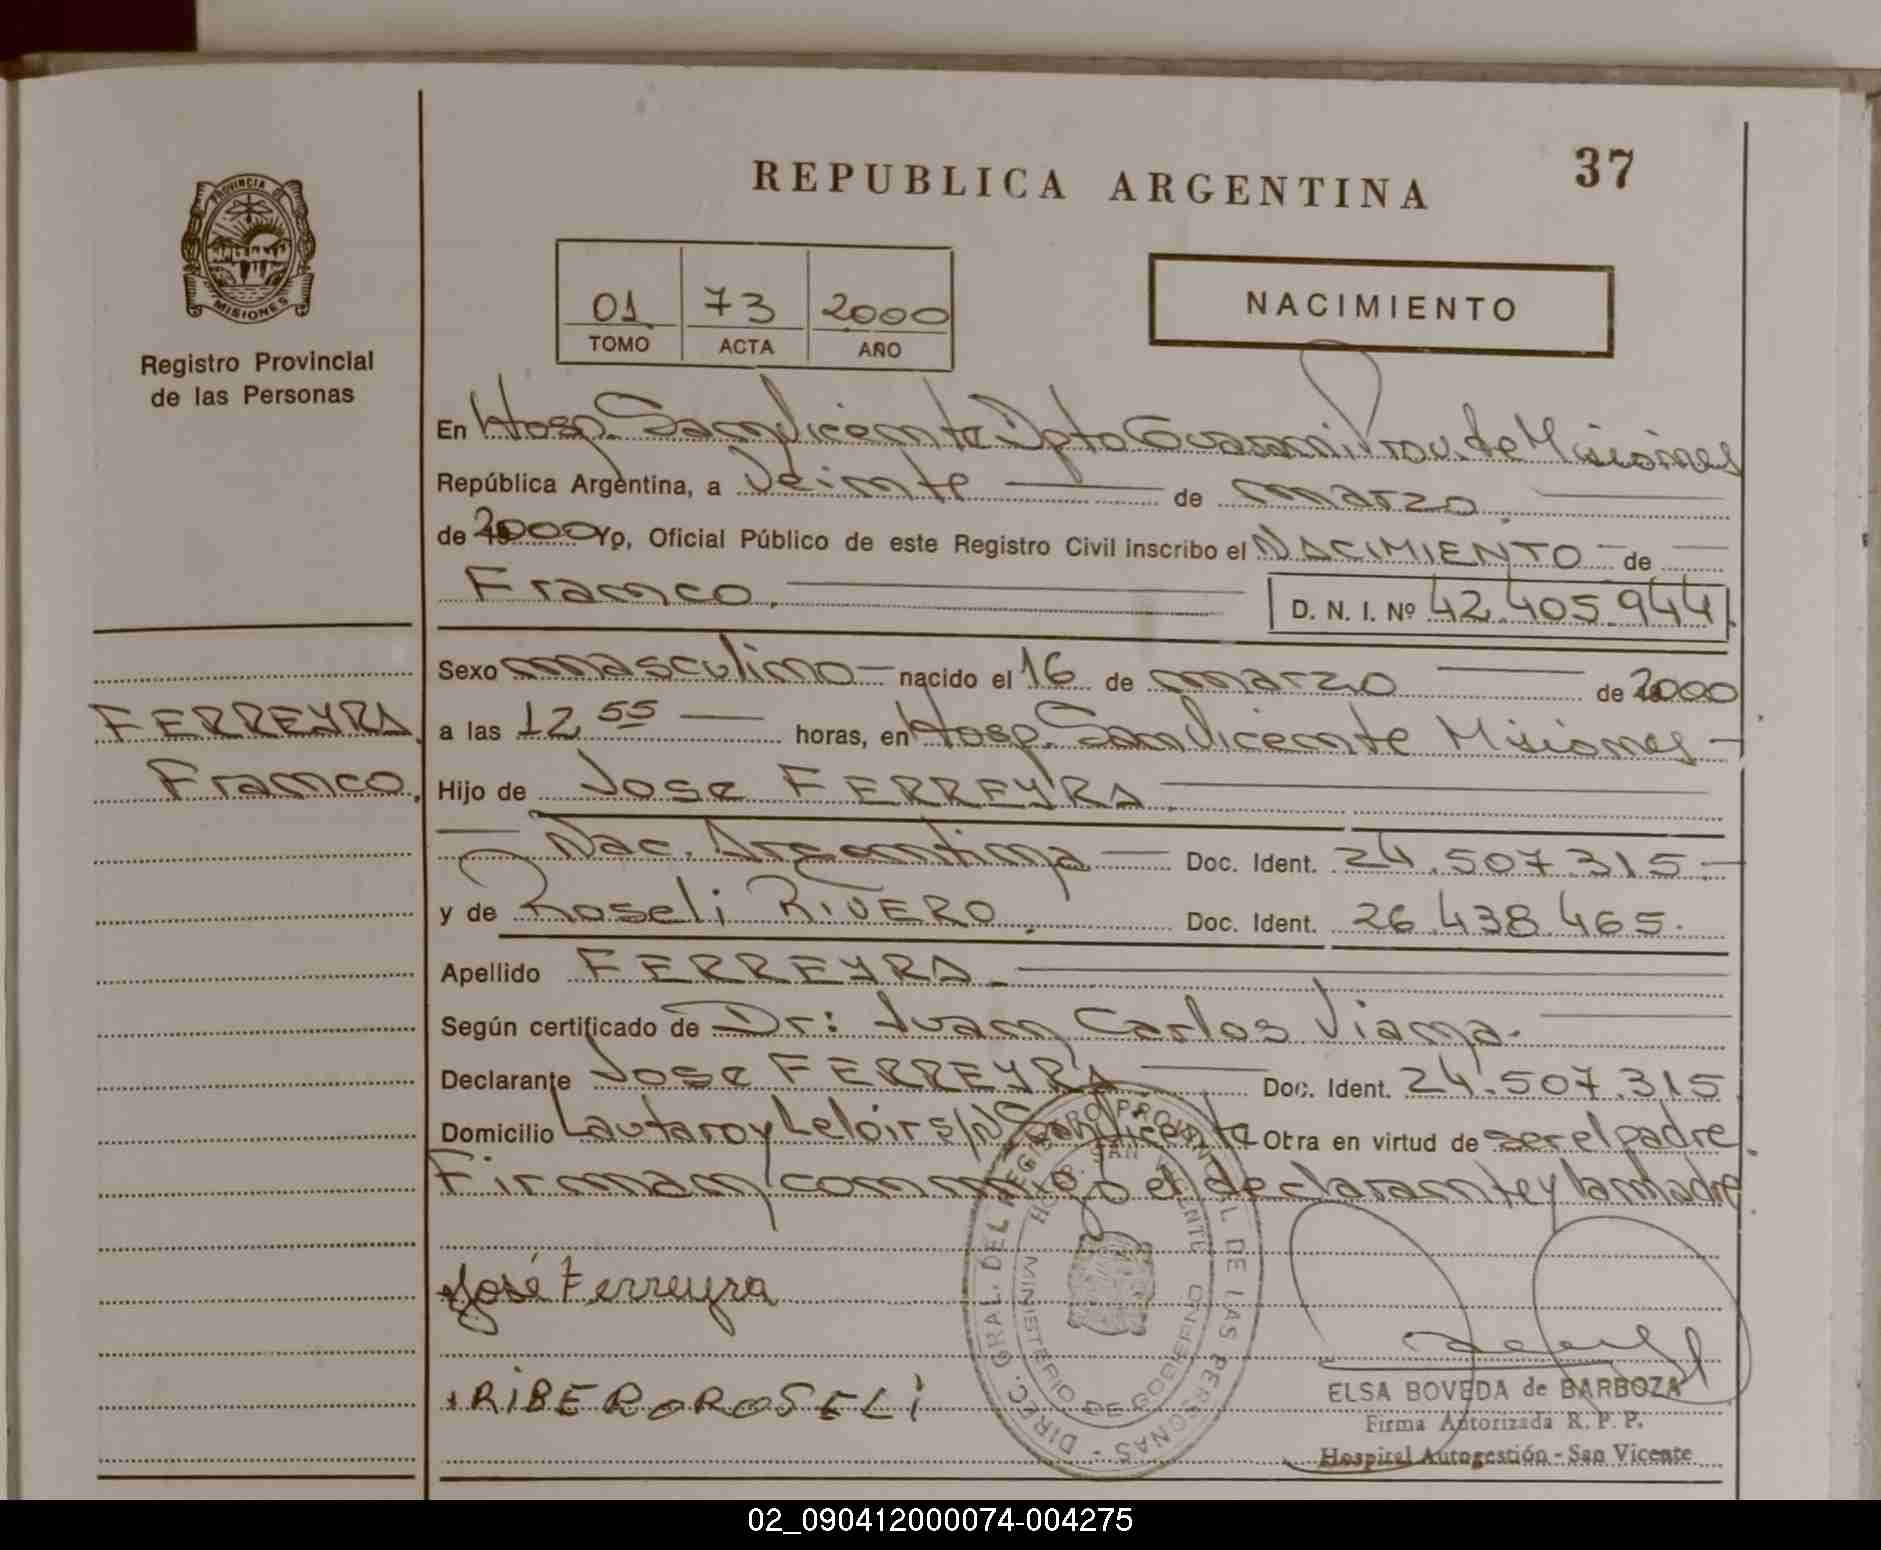 37
REPUBLICA ARGENTINA
PROVINCIA DE
MISIONES
Registro Provincial
de las Personas
01 73 2000
TOMO ACTA AÑO
NACIMIENTO
En Hosp. San Vicente Dpto Guarani Prov. de Misiones
República Argentina, a Veinte de marzo.
de 2000 Yo, Oficial Público de este Registro Civil inscribo el NACIMIENTO de
Franco. D. N. I. Nº 42.405.944
Sexo masculino nacido el 16 de marzo de 2000
FERREYRA
Franco.
a las 12 55 horas, en Hosp. San Vicente Misiones
Hijo de Jose FERREYRA.
Nac. Argentina Doc. Ident. 24.507.315.
y de Roseli RIVERO. Doc. Ident. 26.438.465.
Apellido FERREYRA.
Según certificado de Dr: Juan Carlos Viana.
Declarante Jose FERREYRA Doc. Ident. 24.507.315
Domicilio Lautaro y Leloir s/n San Vicente Otra en virtud de ser el padre
Firman conmigo el declarante y la madre.
José Ferreyra
RIBERO ROSELI
DIREC. GRAL. DEL REGISTRO PROVINCIAL DE LAS PERSONAS
HOSP. SAN VICENTE
MINISTERIO DE GOBIERNO
ELSA BOVEDA de BARBOZA
Firma Autorizada R. P. P.
Hospital Autogestión - San Vicente
02_090412000074-004275